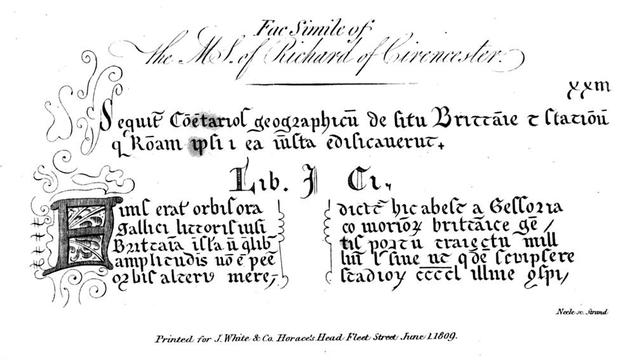 Fac Simile of
the MS. of Richard of Cirencester.
xxm
Sequit Cōētarioł geographicū de situ Brittāīe t statiōū
q Rōam ipsi i ea īusta edificaverut.
Lib. I Ci.
Finis erat orbis ora
Gallici littoris nisi
Brittāīa īsła ū qlib
amplitudis nō ē peē
orbis alterv mere,
dictē hic abest a Gessoria
co moriōr brittāīce gē,
tis portu traiectu mill
stadiov ccccl illme
Neele sc. Strand
Printed for J. White & Co. Horace's Head Fleet Street June 1. 1809.